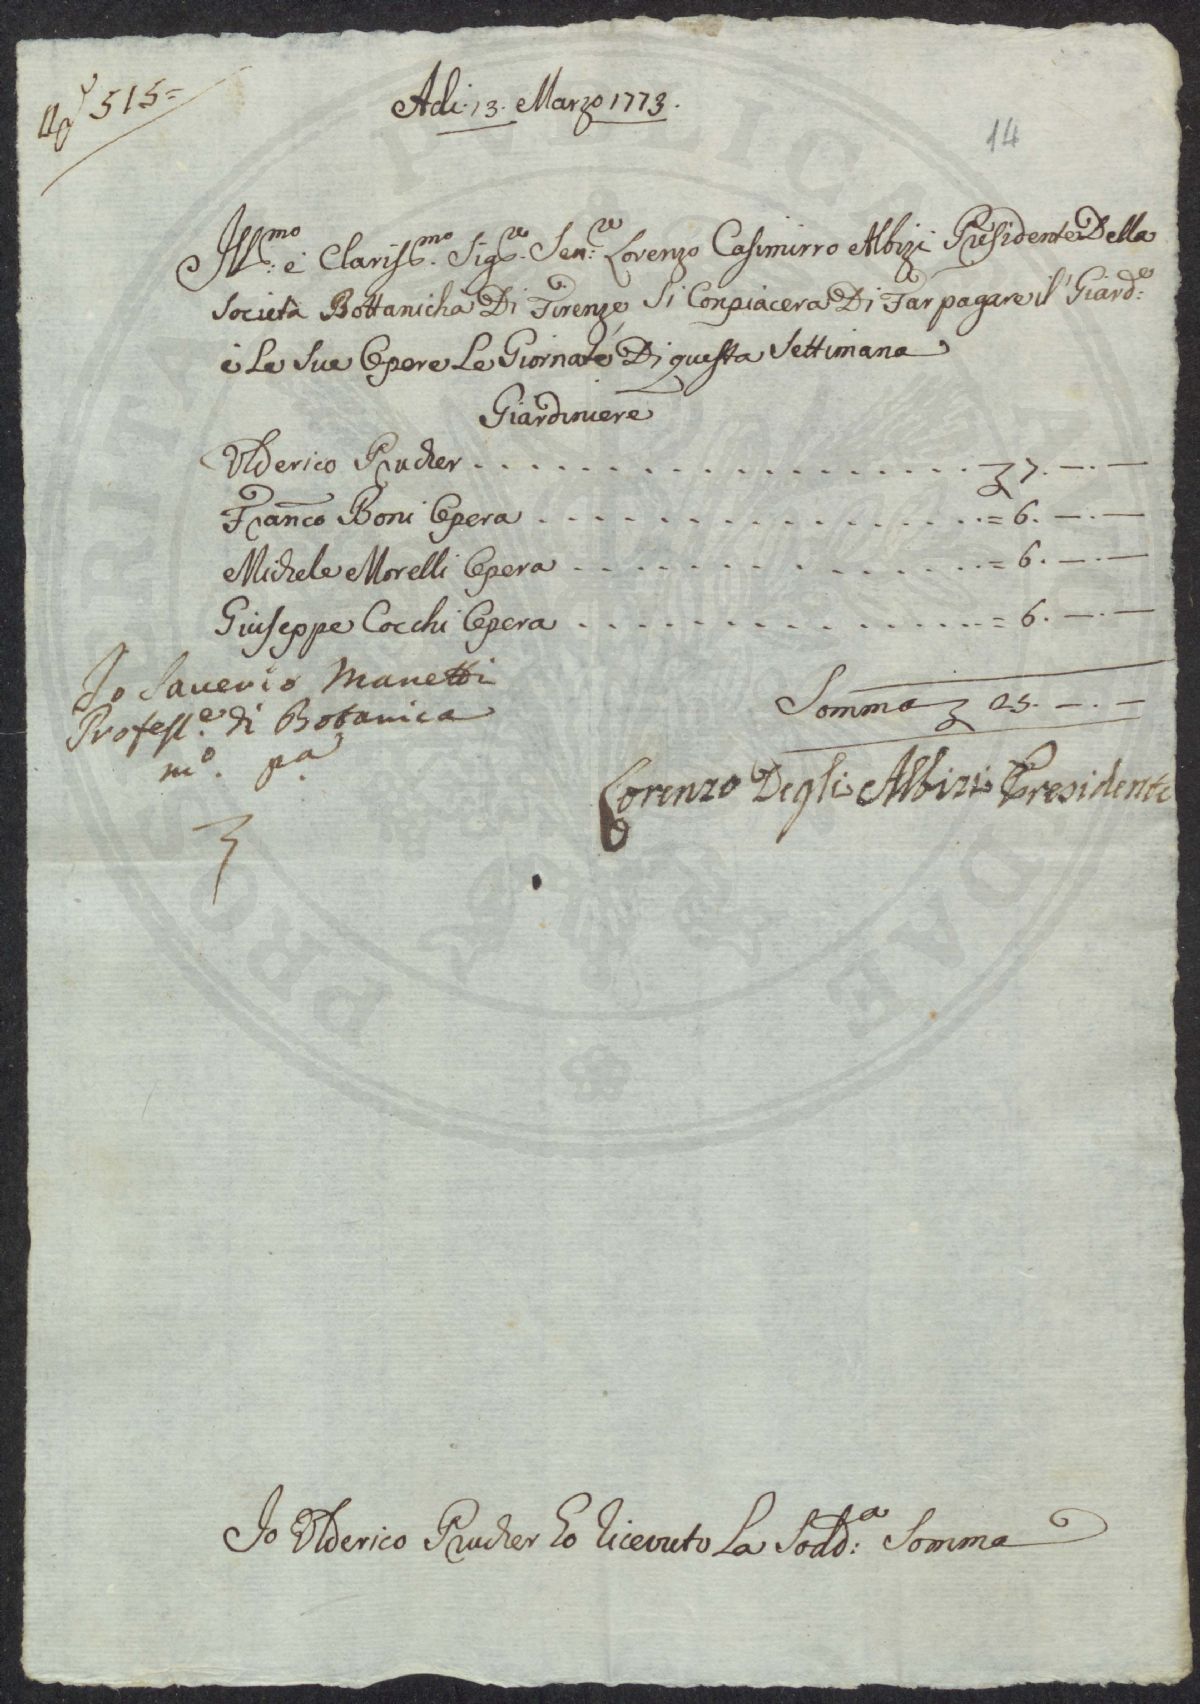 515=
Adi. 13. Marzo 1773.
14
Ill:mo e Clariss:mo Sig:re Sen:re Lorenzo Casimirro Albizi Presidente Della
Società Bottanicha Di Firenze Si Conpiacera Di Far pagare il Giard:e
e Le Sue Opere Le Giornate Di questa Settimana
Giardiniere
Ulderico Prucher . . . . . . . . . . . . . . . . . . . 7. —. —
Franco Boni Opera . . . . . . . . . . . . . . . . . = 6. —. —
Michele Morelli Opera . . . . . . . . . . . . . . . . = 6. —. —
Giuseppe Cocchi Opera . . . . . . . . . . . . . . . . = 6. —. —
Io Saverio Manetti
Profess:e di Botanica
mo. pa
Somma 25. —. —
Lorenzo Degli Albizi Presidente
Io Ulderico Prucher Ho ricevuto La Sodd:a Somma